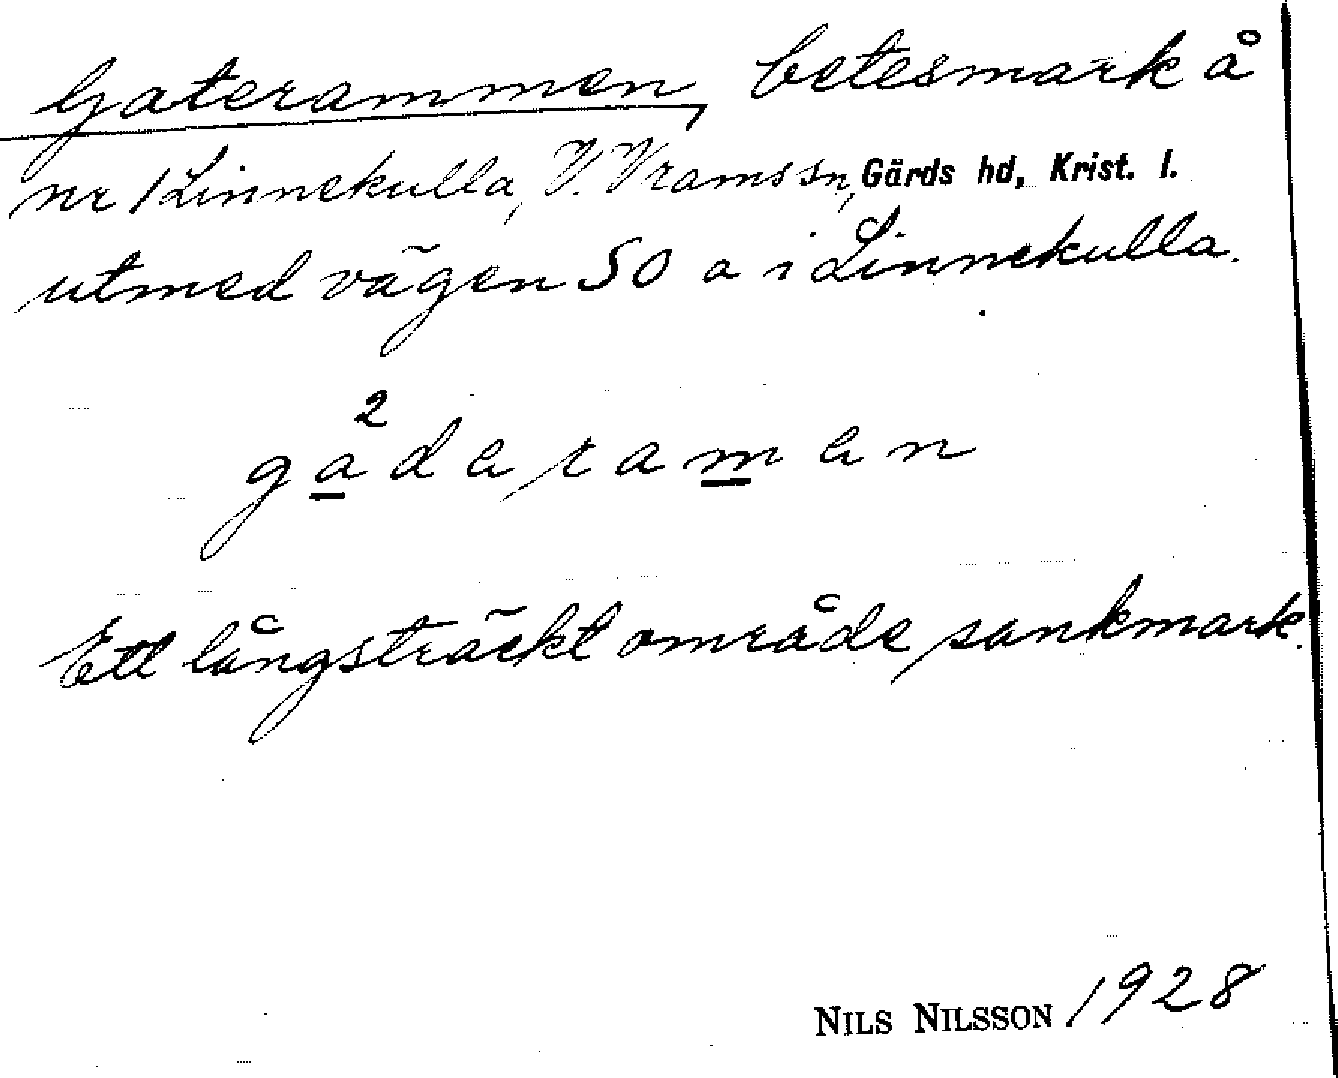 Gaterammen, betesmark å
nr 1 Linnekulla, V. Vrams sn, Gärds hd, Krist. l.
utmed vägen SO a i Linnekulla.
2
gadaraman
Ett långsträckt område sankmark.
NILS NILSSON 1928